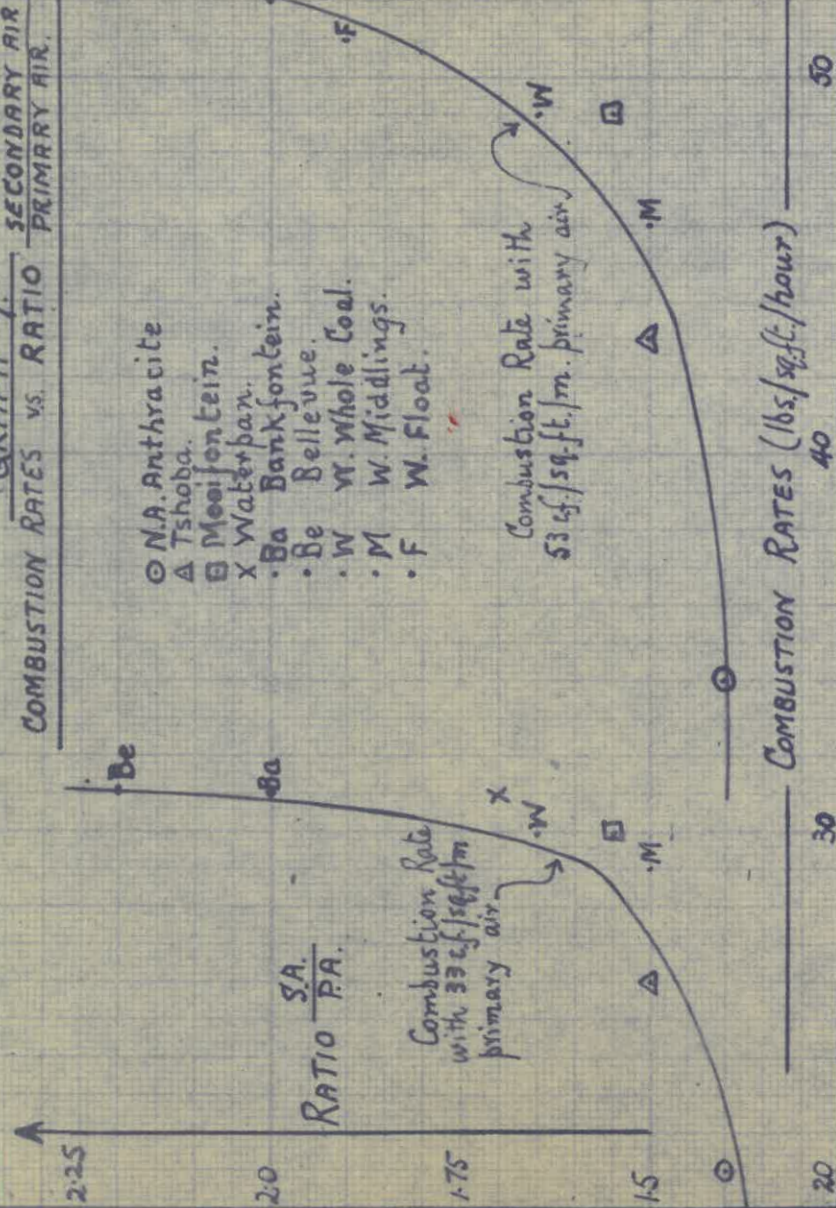 COMBUSTION RATES VS. RATIO SECONDARY AIR
PRIMARY AIR.
⊙ N.A. Anthracite
△ Tshoba.
⊡ Mooifontein.
X Waterpan.
· Ba Bankfontein.
· Be Bellevue.
· W W. Whole Coal.
· M W. Middlings.
· F W. Float.
RATIO S.A.
P.A.
Combustion Rate
with 33 cf./sq.ft/m
primary air
Combustion Rate with
53 cf./sq.ft./m. primary air
Be
Ba
X
W
M
F
W
M
2.25
2.0
1.75
1.5
20
30
40
50
COMBUSTION RATES (lbs./sq.ft./hour)